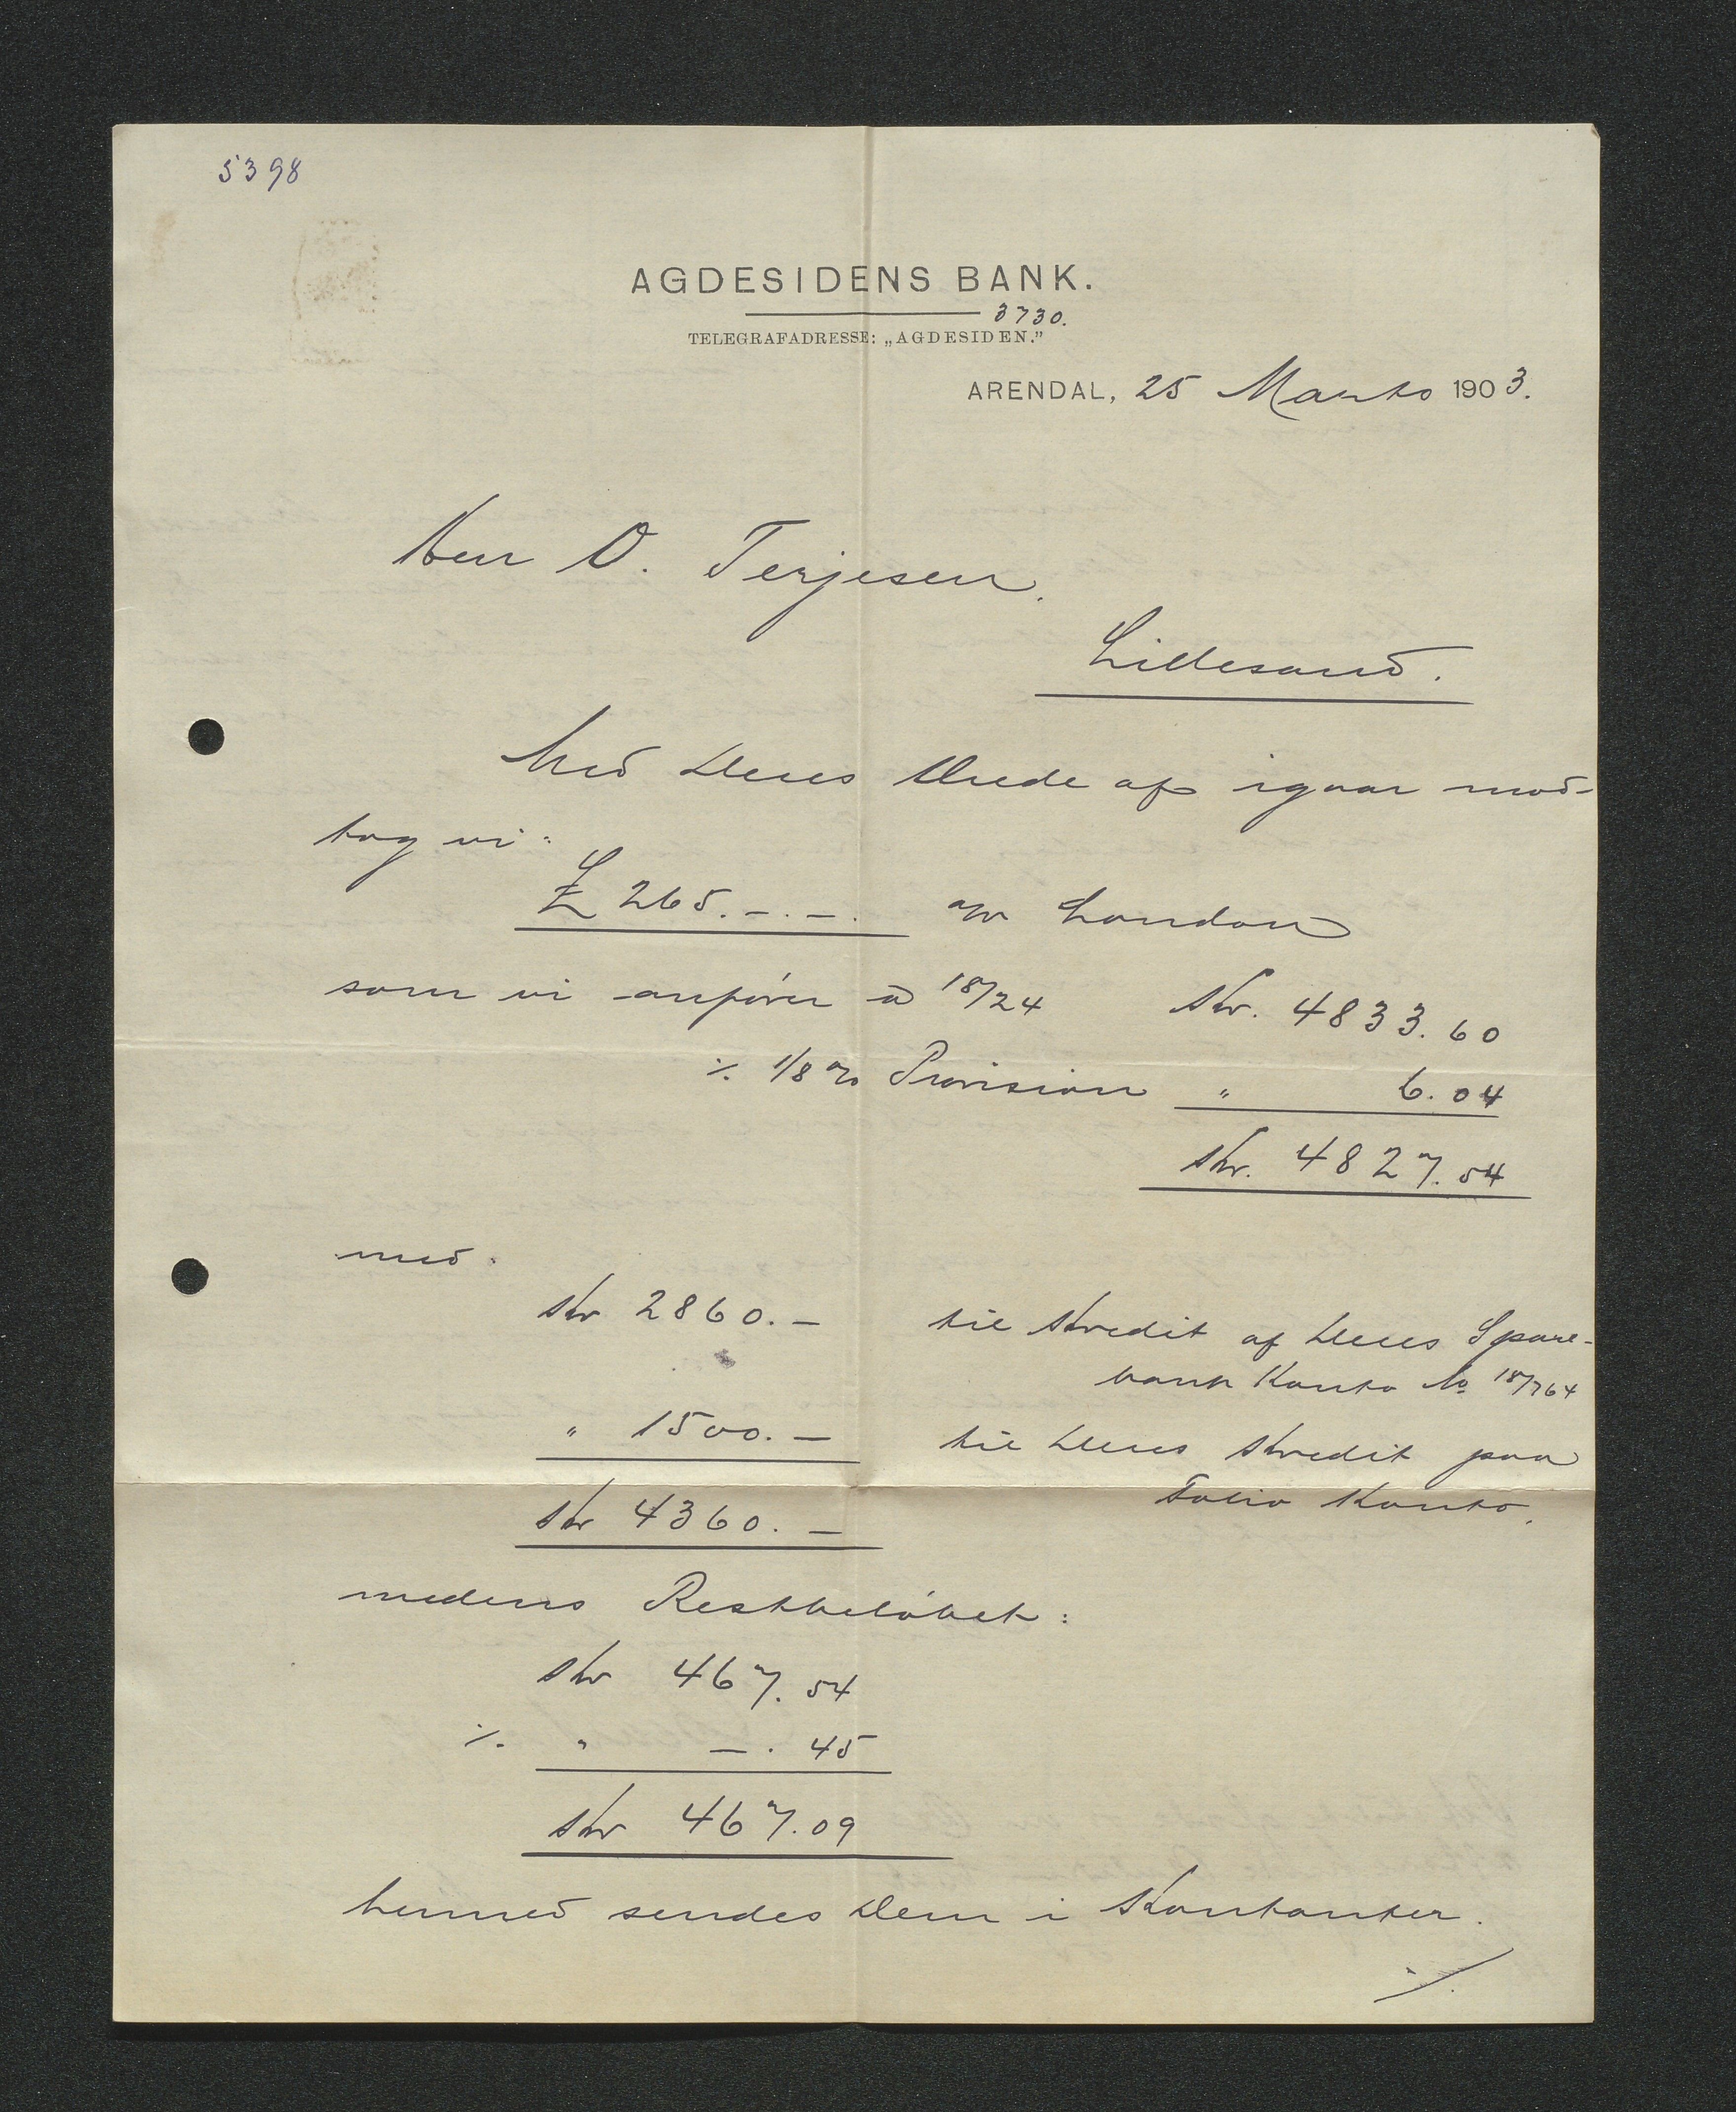 5398
AGDESIDENS BANK.
3730.
TELEGRAFADRESSE: „AGDESIDEN."
ARENDAL, 25 Marts 1903.
Herr O. Terjesen.
Lillesand.
Med Deres Ærede af igaar mod-
tog vi:
£ 265.-.-. a/v London
som vi anfører à 18/24 Kr. 4833.60
÷ 1/8 % Provision " 6.04
Kr. 4827.54
med.
Kr 2860.- til Kredit af Deres Spare-
bank Konto No 18/764
" 1500.- til Deres Kredit paa
Folio Konto.
Kr 4360.-
medens Restbeløbet:
Kr 467.54
÷ " -.45
Kr 467.09
hermed sendes Dem i Kontanter.
./.